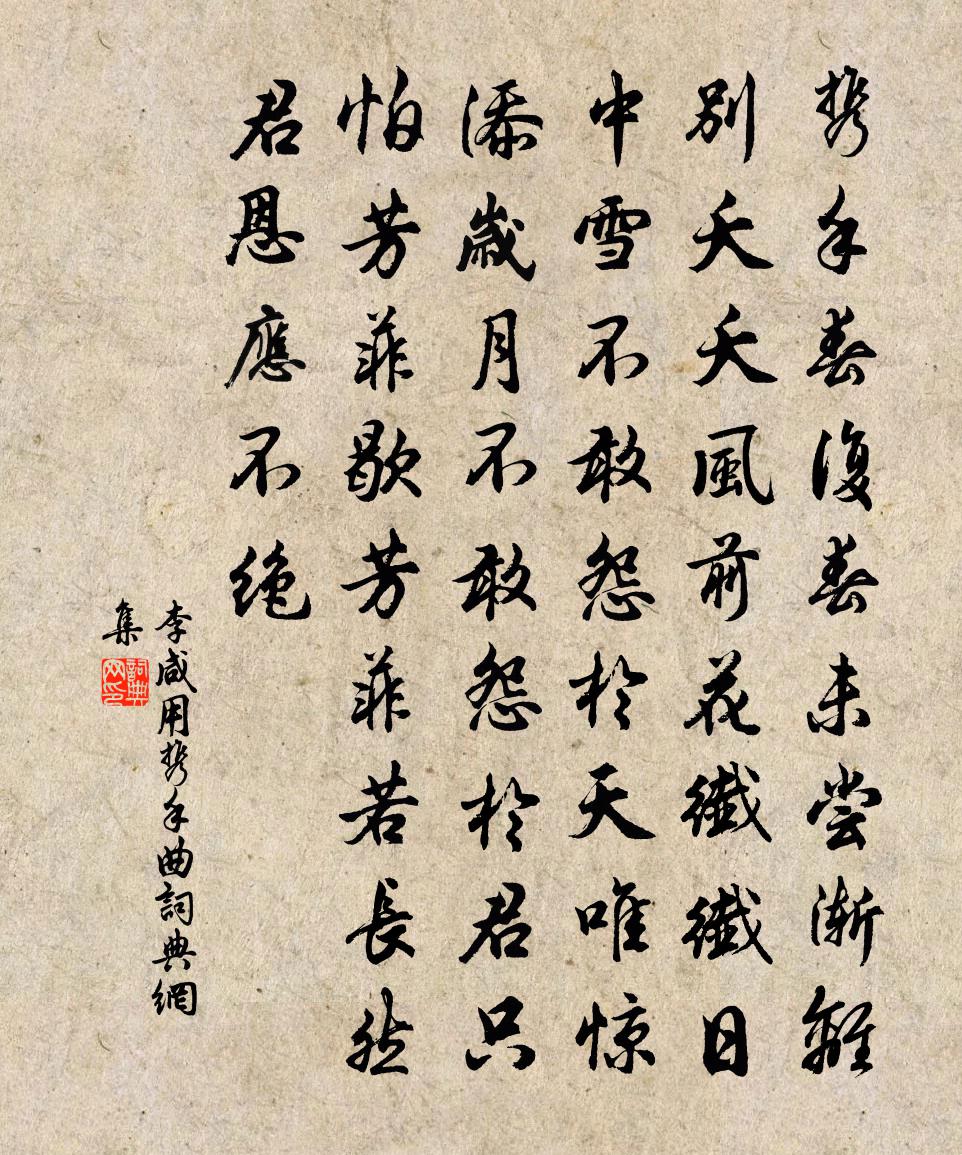 攜手春復春未嘗漸離
別夭夭風前花纖纖日
中雪不敢怨於天唯惊
添歲月不敢怨於君只
怕芳菲歇芳菲若長然
君恩應不绝
李咸用攜手曲詞典網
集
詞典网印